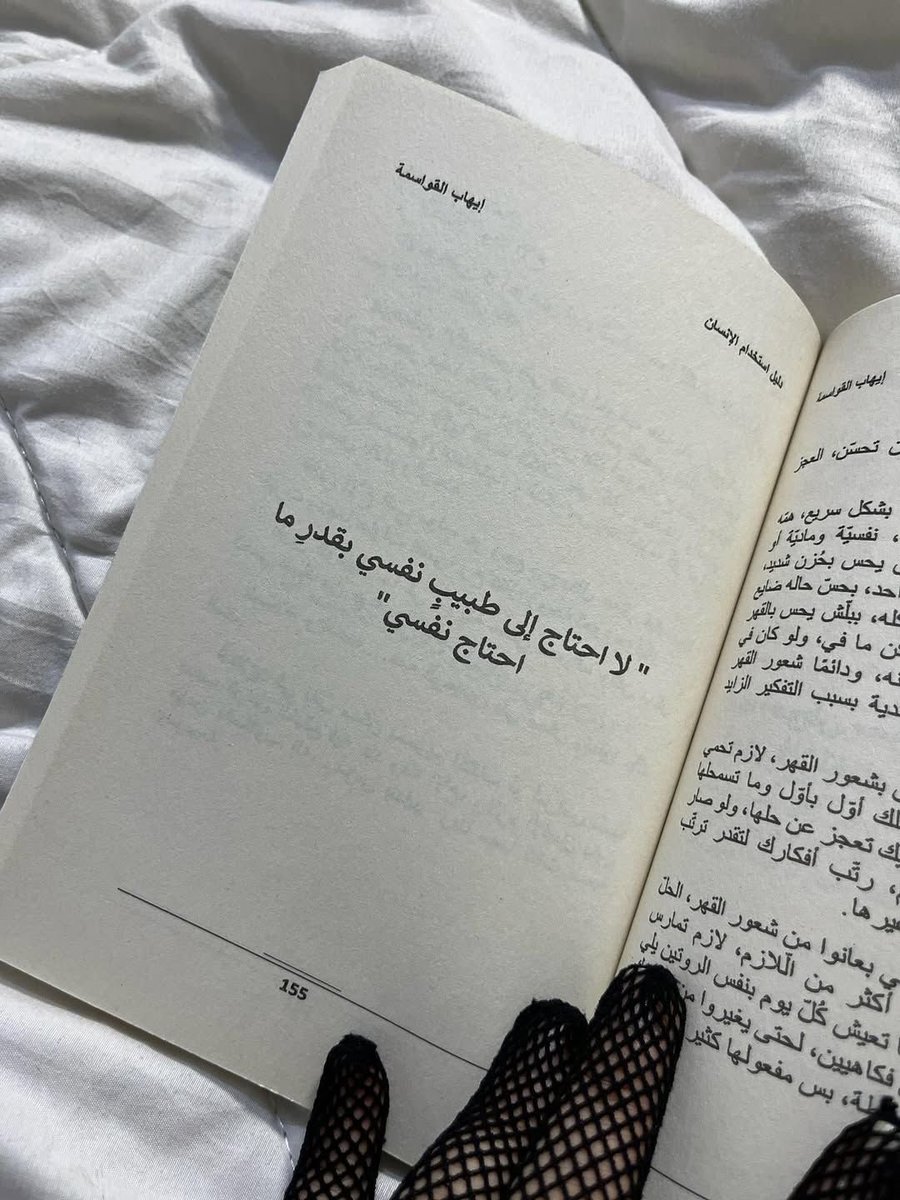 إيهاب القواسمة
دليل استخدام الإنسان
" لا احتاج إلى طبيبٍ نفسي بقدرِ ما
احتاج نفسي"
155
إيهاب القواسمة
تحسّن، العجز
بشكل سريع، هنّه
نفسيّة وماديّة أو
يحس بحُزن شديد،
بحسّ حاله ضايع
ببلّش يحس بالقهر
ما في، ولو كان في
ودائمًا شعور القهر
بسبب التفكير الزايد
بشعور القهر، لازم تحمي
أوّل بأوّل وما تسمحلها
تعجز عن حلها، ولو صار
رتّب أفكارك لتقدر ترتّب
غيرها.
بعانوا من شعور القهر، الحلّ
أكثر من اللّازم، لازم تمارس
تعيش كُلّ يوم بنفس الروتين يلي
فكاهيين، لحتى يغيروا
بس مفعولها كثير